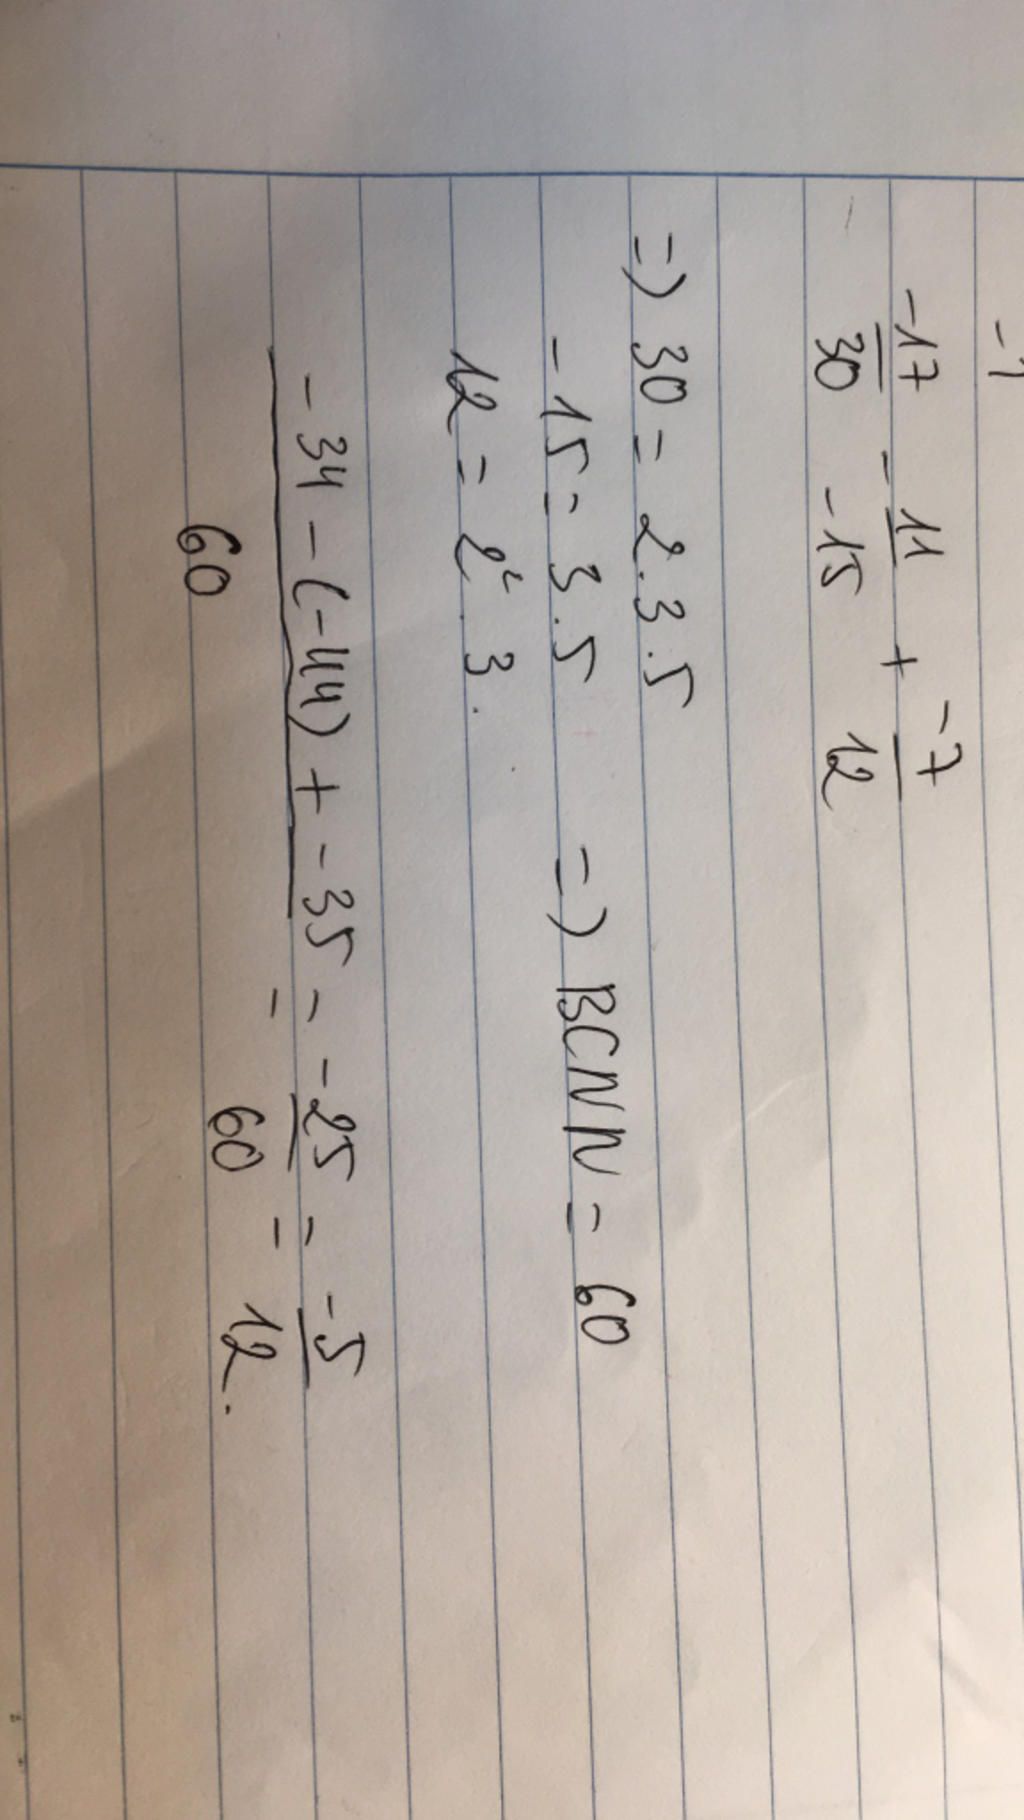 -17/30 - 11/-15 + -7/12
=) 30 = 2.3.5
-15 = 3.5 =) BCNN = 60
12 = 2².3.
-34 - (-44) + -35 / 60 = -25/60 = -5/12.